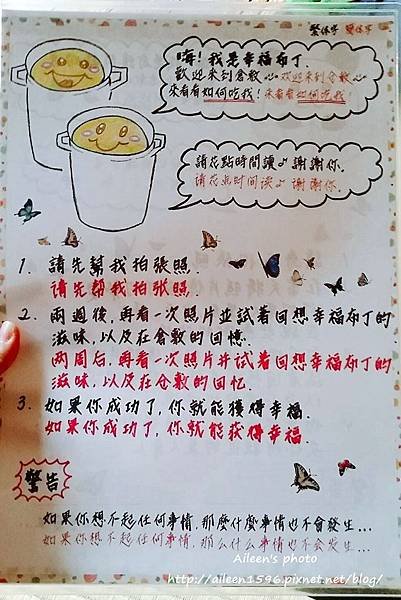 繁体字 簡体字
嗨!我是幸福布丁.
歡迎來到倉敷 欢迎来到仓敷
來看看如何吃我!来看看如何吃我
請花點時間讀♪ 謝謝你.
请花点时间读♪ 谢谢你.
1. 請先幫我拍張照.
请先帮我拍张照.
2. 兩週後,再看一次照片並試著回想幸福布丁的
滋味,以及在倉敷的回憶.
两周后,再看一次照片并试着回想幸福布丁的
滋味,以及在仓敷的回忆.
3. 如果你成功了,你就能獲得幸福.
如果你成功了,你就能获得幸福.
警告
如果你想不起任何事情,那麼什麼事情也不會發生...
如果你想不起任何事情,那么什么事情也不会发生...
Aileen's photo
http://aileen1596.pixnet.net/blog/